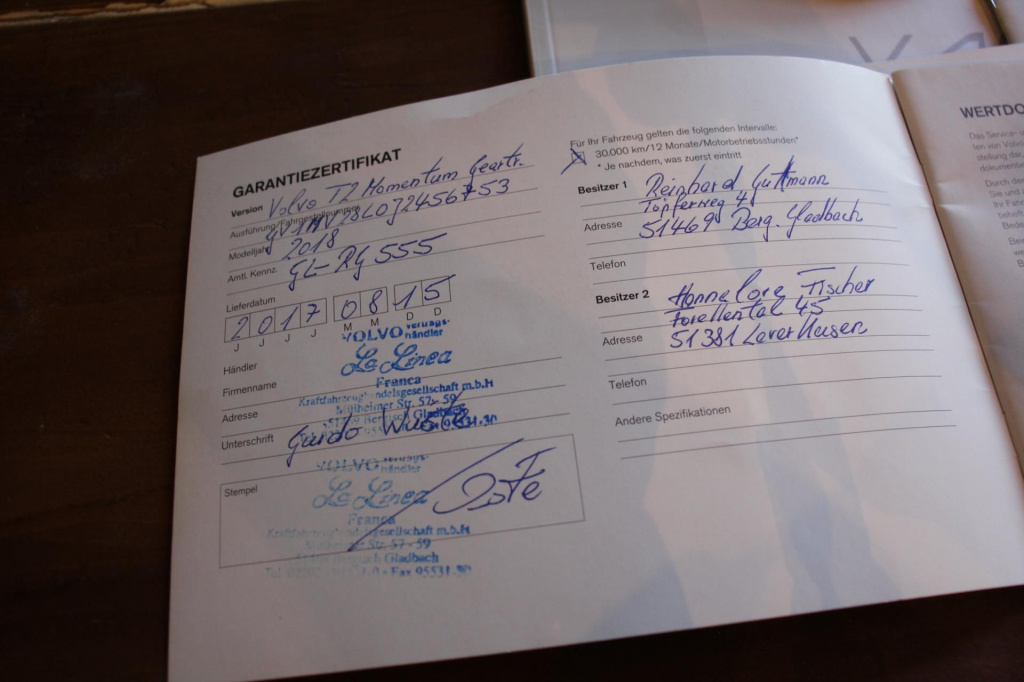 GARANTIEZERTIFIKAT
Version Volvo T2 Momentum Geartr.
Ausführung/Fahrgestellnummer
Modelljahr 2018
Amtl. Kennz. GL-RG 555
Lieferdatum
2 0 1 7 0 8 1 5
J J J J M M D D
Händler
VOLVO
händler
La Linea
Firmenname
Franca
Kraftfahrzeughandelsgesellschaft m.b.H
Adresse
Mülheimer Str. 57-59
Bergisch Gladbach
Unterschrift
Stempel
VOLVO
händler
La Linea
Franca
Kraftfahrzeughandelsgesellschaft m.b.H
Mülheimer Str. 57-59
Bergisch Gladbach
Fax 95531-30
Für Ihr Fahrzeug gelten die folgenden Intervalle:
30.000 km/12 Monate/Motorbetriebsstunden*
* Je nachdem, was zuerst eintritt
Besitzer 1 Reinhard Guttmann
Töpferweg 4
Adresse 51469 Berg. Gladbach
Telefon
Besitzer 2 Hannelore Fischer
Forellental 45
Adresse 51381 Leverkusen
Telefon
Andere Spezifikationen
WERTDO